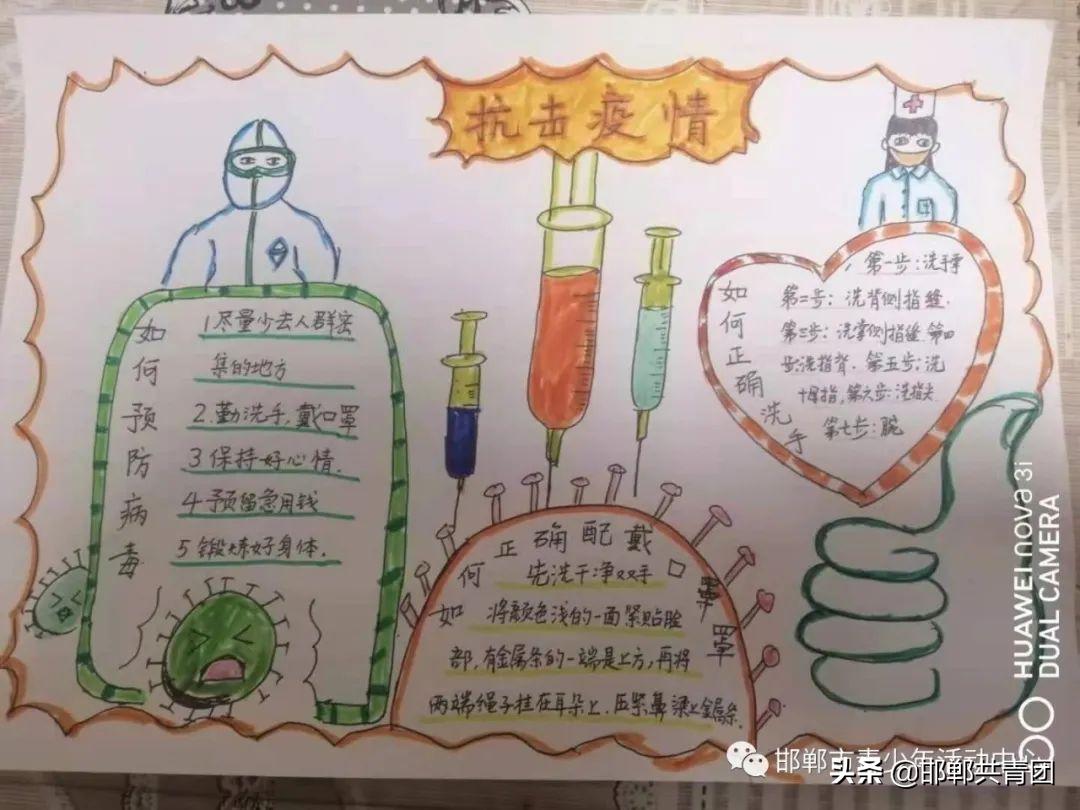 抗击疫情
如何预防病毒
1尽量少去人群密
集的地方
2.勤洗手,戴口罩
3保持好心情.
4预留急用钱
5锻炼好身体.
如何正确配戴口罩
先洗干净双手
将颜色浅的一面紧贴脸
部,有金属条的一端是上方,再将
两端绳子挂在耳朵上.压紧鼻梁上
如何正确洗手
第一步:洗手掌
第二步:洗背侧指缝.
第三步:洗掌侧指缝.第四
步:洗指背.第五步:洗
拇指,第六步:洗指尖
第七步:腕
HUAWEI nova 3i
DUAL CAMERA
邯郸市青少年活动中心
头条 @邯郸共青团